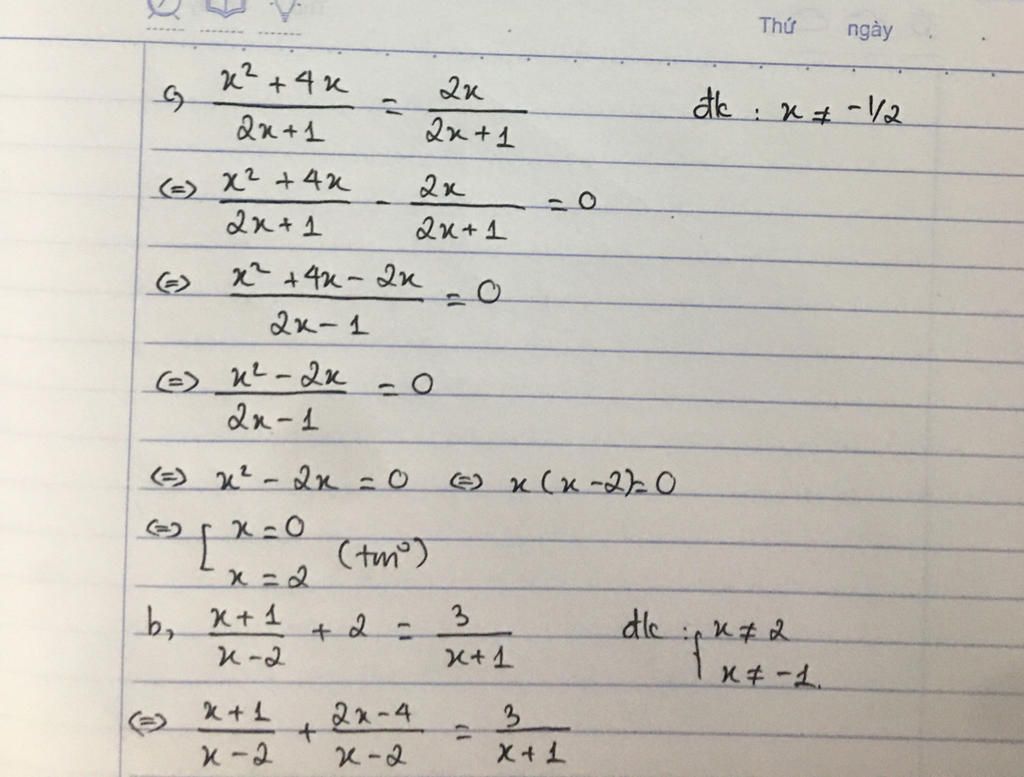 Thứ ngày
c, (x² + 4x)/(2x + 1) = 2x/(2x + 1) đk : x ≠ -1/2
(=) (x² + 4x)/(2x + 1) - 2x/(2x + 1) = 0
(=) (x² + 4x - 2x)/(2x - 1) = 0
(=) (x² - 2x)/(2x - 1) = 0
(=) x² - 2x = 0 (=) x(x - 2) = 0
(=) [ x = 0
x = 2 (tm°)
b, (x + 1)/(x - 2) + 2 = 3/(x + 1) đk : { x ≠ 2
x ≠ -1.
(=) (x + 1)/(x - 2) + (2x - 4)/(x - 2) = 3/(x + 1)